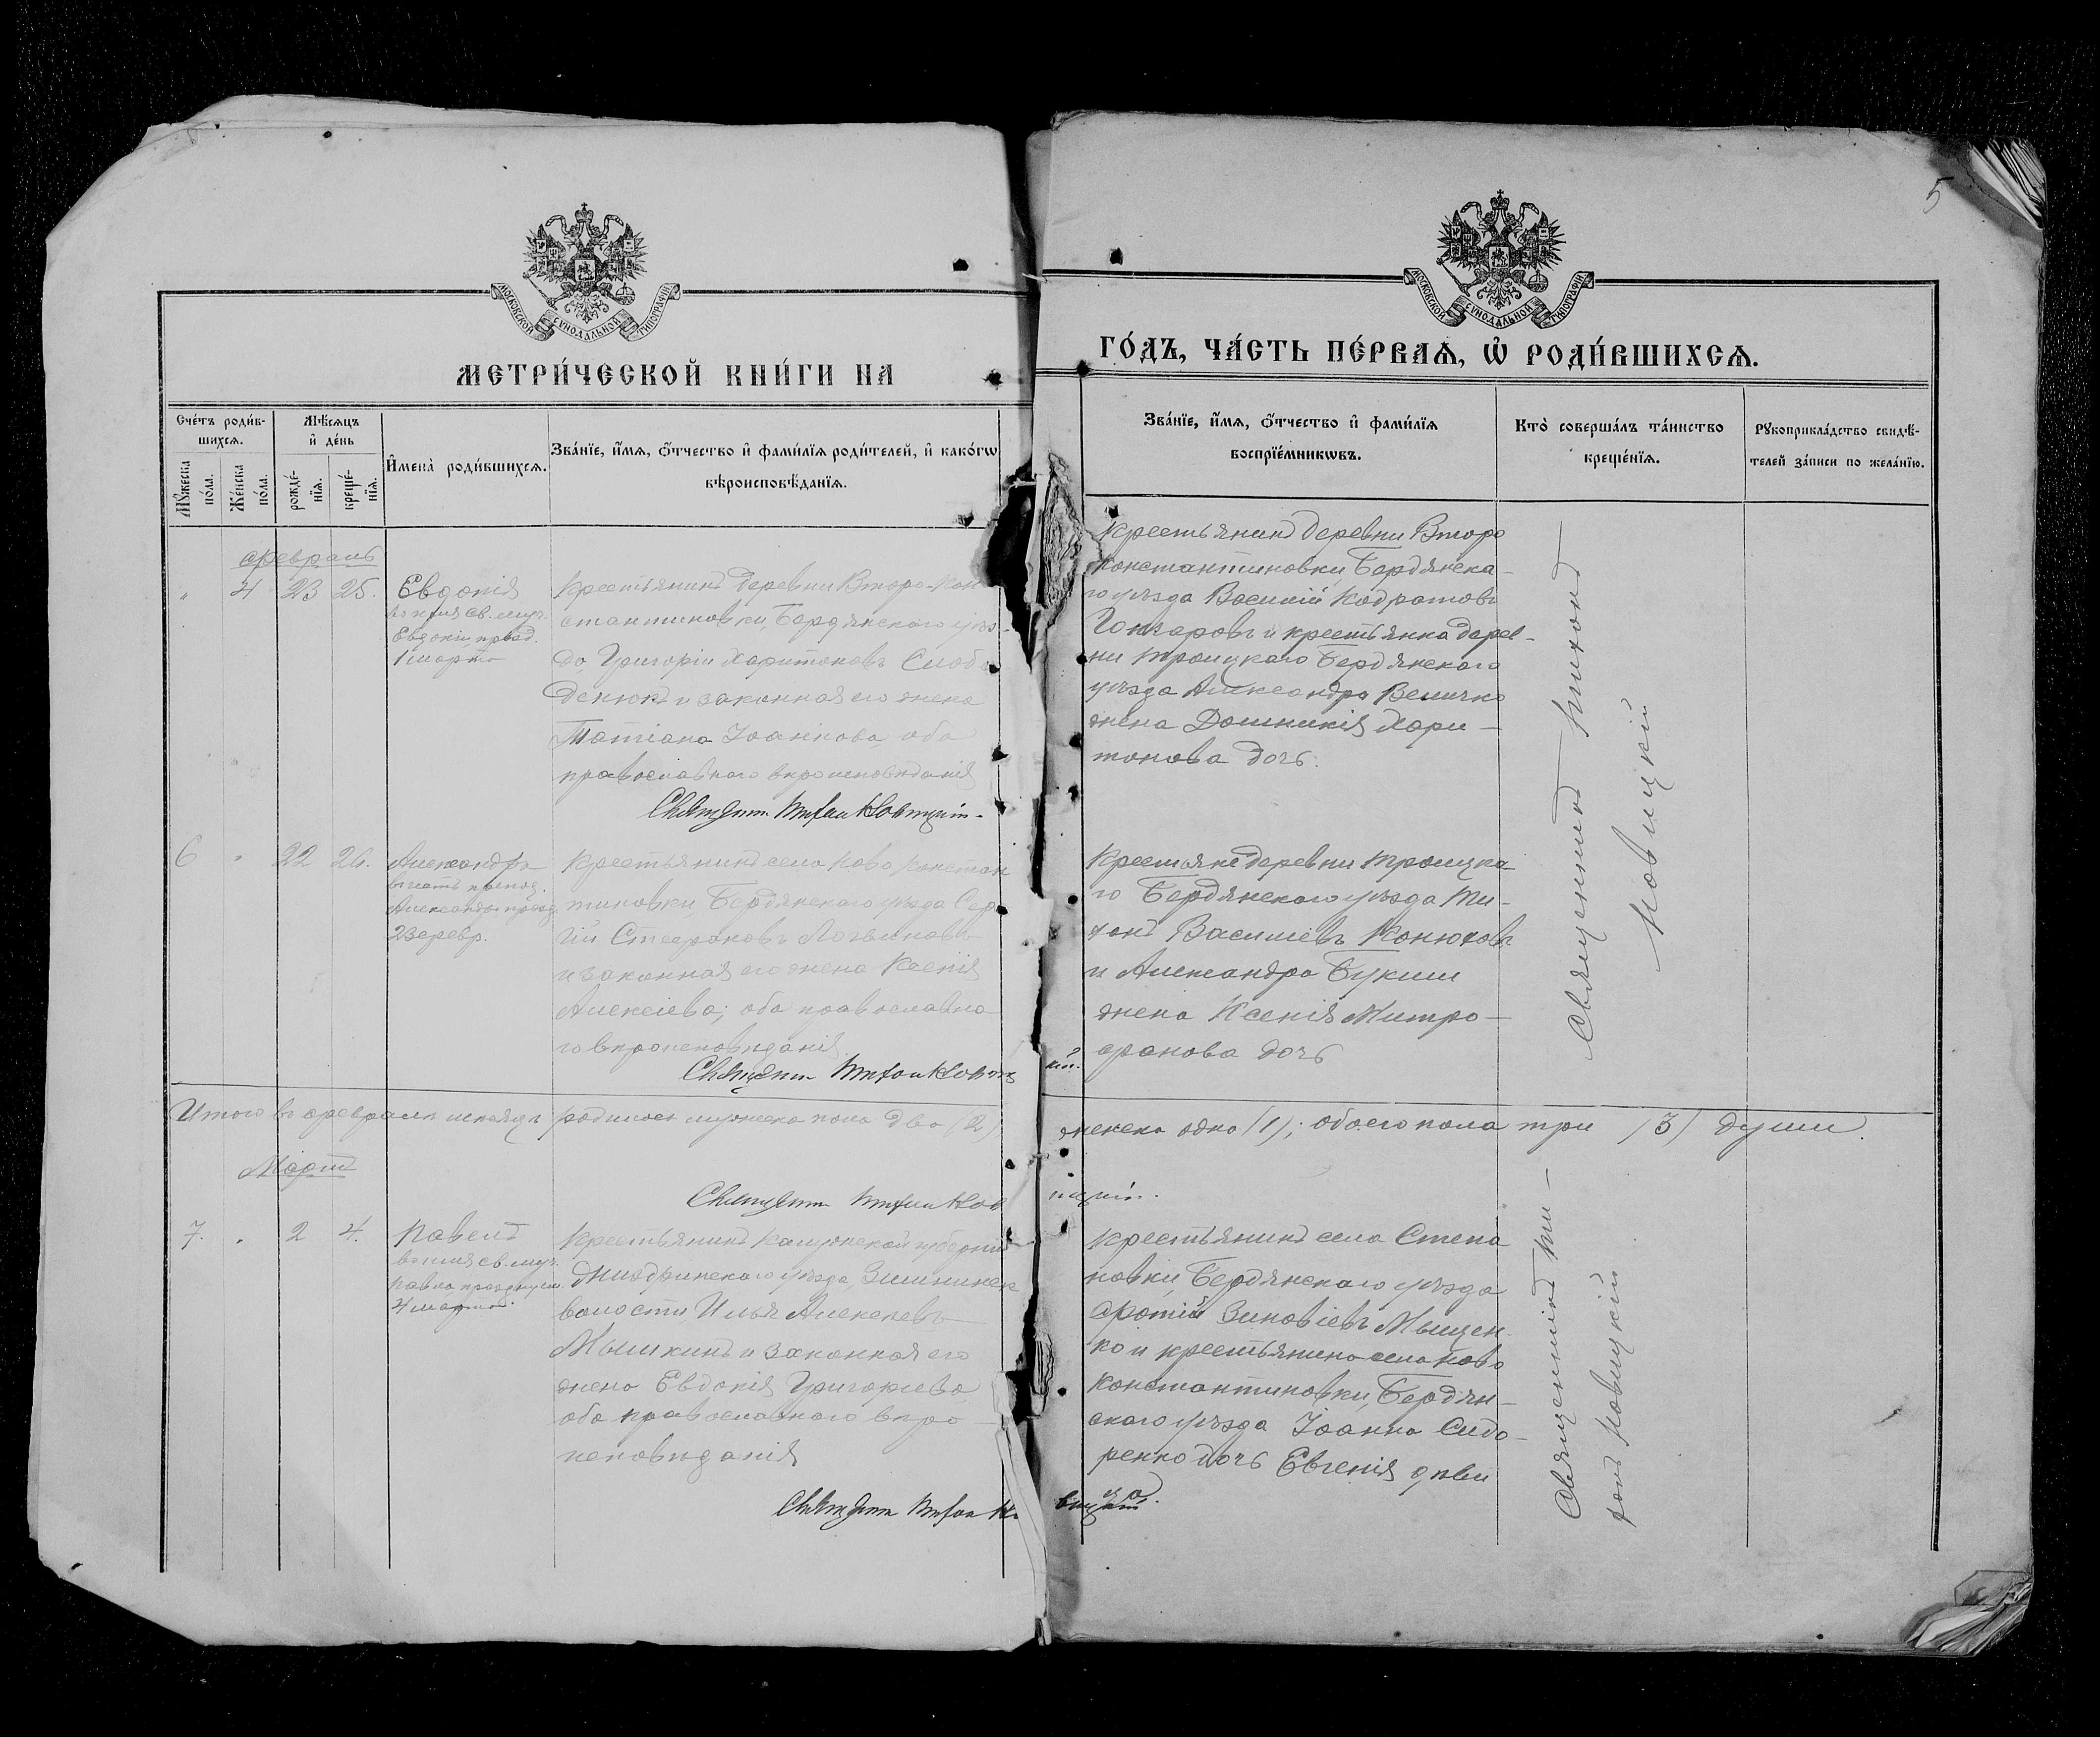 5
МОСКОВСКОЙ СУНОДАЛЬНОЙ ТИПОГРАФІИ
МОСКОВСКОЙ СУНОДАЛЬНОЙ ТИПОГРАФІИ
МЕТРИ́ЧЕСКОЙ КНИ́ГИ НА
ГО́ДЪ, ЧА́СТЬ ПЕ́РВАѦ, Ѡ҆ РОДИ́ВШИХСѦ.
Сче́тъ роди́в-
шихсѧ.
Мꙋ́жеска по́ла.
Же́нска по́ла.
Мѣ́сѧцъ
и҆ де́нь
рожде́-
нїѧ.
креще́-
нїѧ.
И҆мена̀ роди́вшихсѧ.
Зва́нїе, и҆́мѧ, ѻ҆́тчество и҆ фами́лїѧ роди́телей, и҆ како́гѡ
вѣроисповѣ́данїѧ.
Зва́нїе, и҆́мѧ, ѻ҆́тчество и҆ фами́лїѧ
воспрїе́мникѡвъ.
Кто̀ соверша́лъ та́инство
креще́нїѧ.
Рꙋкоприкла́дство свидѣ́-
телей за́писи по жела́нїю.
Февраль
" 4 23 25.
Евдокія
Евдокіи, празд.
1 марта
Крестьянинъ деревни Второ-Кон
стантиновки, Бердянскаго уѣз-
да Григорій Харитоновъ Слобо
денюкъ и законная его жена
Татіана Іоаннова, оба
православнаго вѣроисповѣданія
Священникъ Тихон Новицкій.
Крестьянинъ деревни Второ
Константиновки, Бердянска-
го уѣзда Василій Кодратовъ
Гончаровъ и крестьянка дерев-
ни Троицкаго Бердянскаго
уѣзда Александра Величко
жена Домникія Хари-
тонова дочь.
Священникъ Тихонъ
Новицкій
6 " 22 26.
Александръ
въ честь препод.
Александра празд.
23 февр.
Крестьянинъ села Ново Констан
тиновки, Бердянскаго уѣзда Сер
гій Стефановъ Логвиновъ
и законная его жена Ксенія
Алексіева; оба православна
го вѣроисповѣданія
Священникъ Тихон Новицкій.
Крестьяне деревни Троицка-
го Бердянскаго уѣзда Ти-
хонъ Василіевъ Конюховъ
и Александра Букши
жена Ксенія Митро-
фанова дочь
Итого въ февралѣ мѣсяцѣ родилось мужеска пола два (2) женска одна (1); обоего пола три (3) души.
Священникъ Тихон Новицкій.
Мартъ
7. " 2 4.
Павелъ
во имя св. муч.
Павла празднуем.
4 марта.
Крестьянинъ Калужской губерніи
Жиздринскаго уѣзда,
волости Илья Алексѣевъ
Мышкинъ и законная его
жена Евдокія Григорьева
оба православнаго вѣро
исповѣданія
Священникъ Тихон Новицкій
Крестьянинъ села Степа
новки, Бердянскаго уѣзда
Фотій Зиновіевъ Мыцен
ко и крестьянина села Ново
Константиновки, Бердян-
скаго уѣзда Іоанна Сидо-
ренко дочь Евгенія дѣви
ца.
Священникъ Ти-
хонъ Новицкій